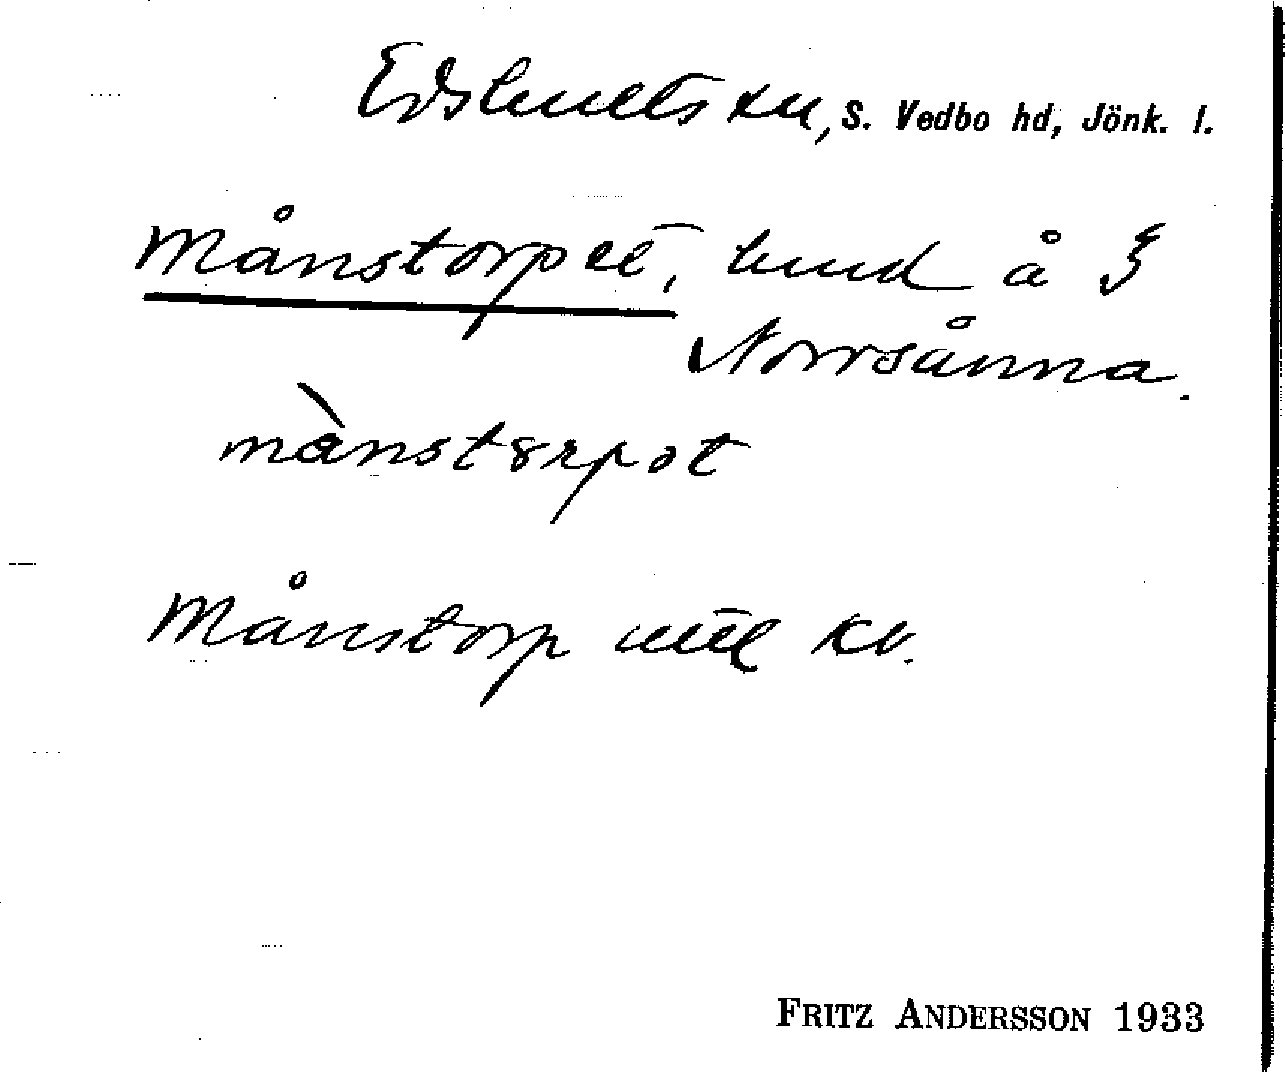 Edshults sn, S. Vedbo hd, Jönk. l.
Månstorpet, lund å
Norrsånna.
månstorpət
Månstorp
FRITZ ANDERSSON 1933